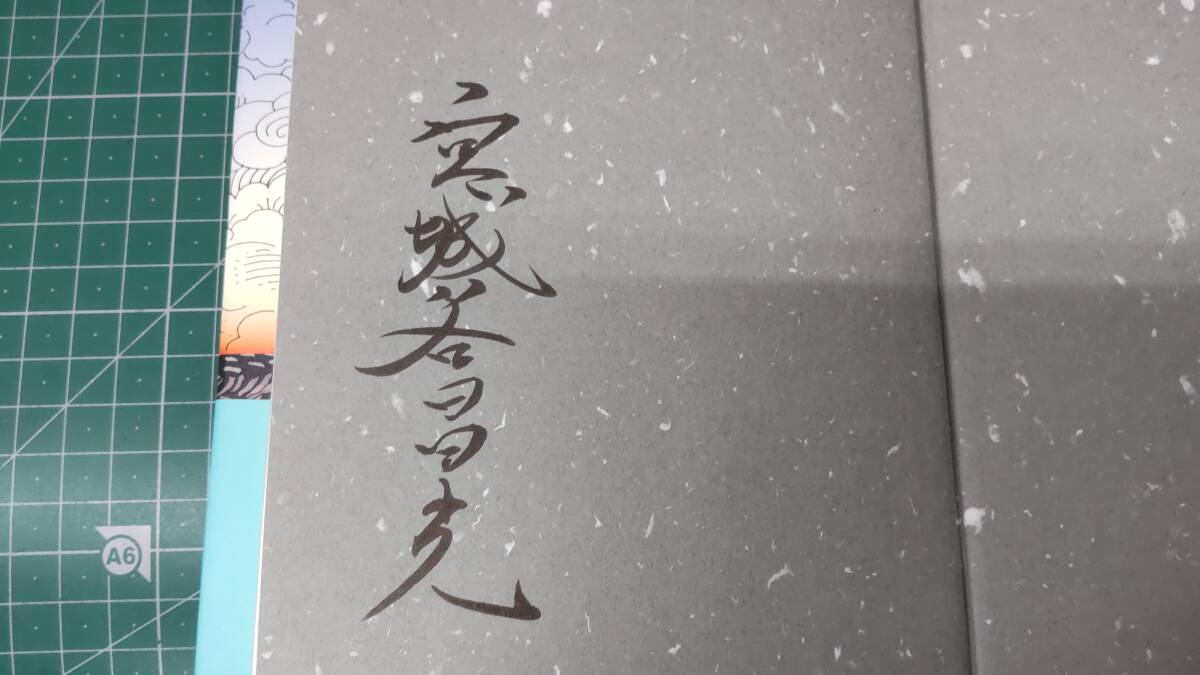 宮城谷昌光
A6